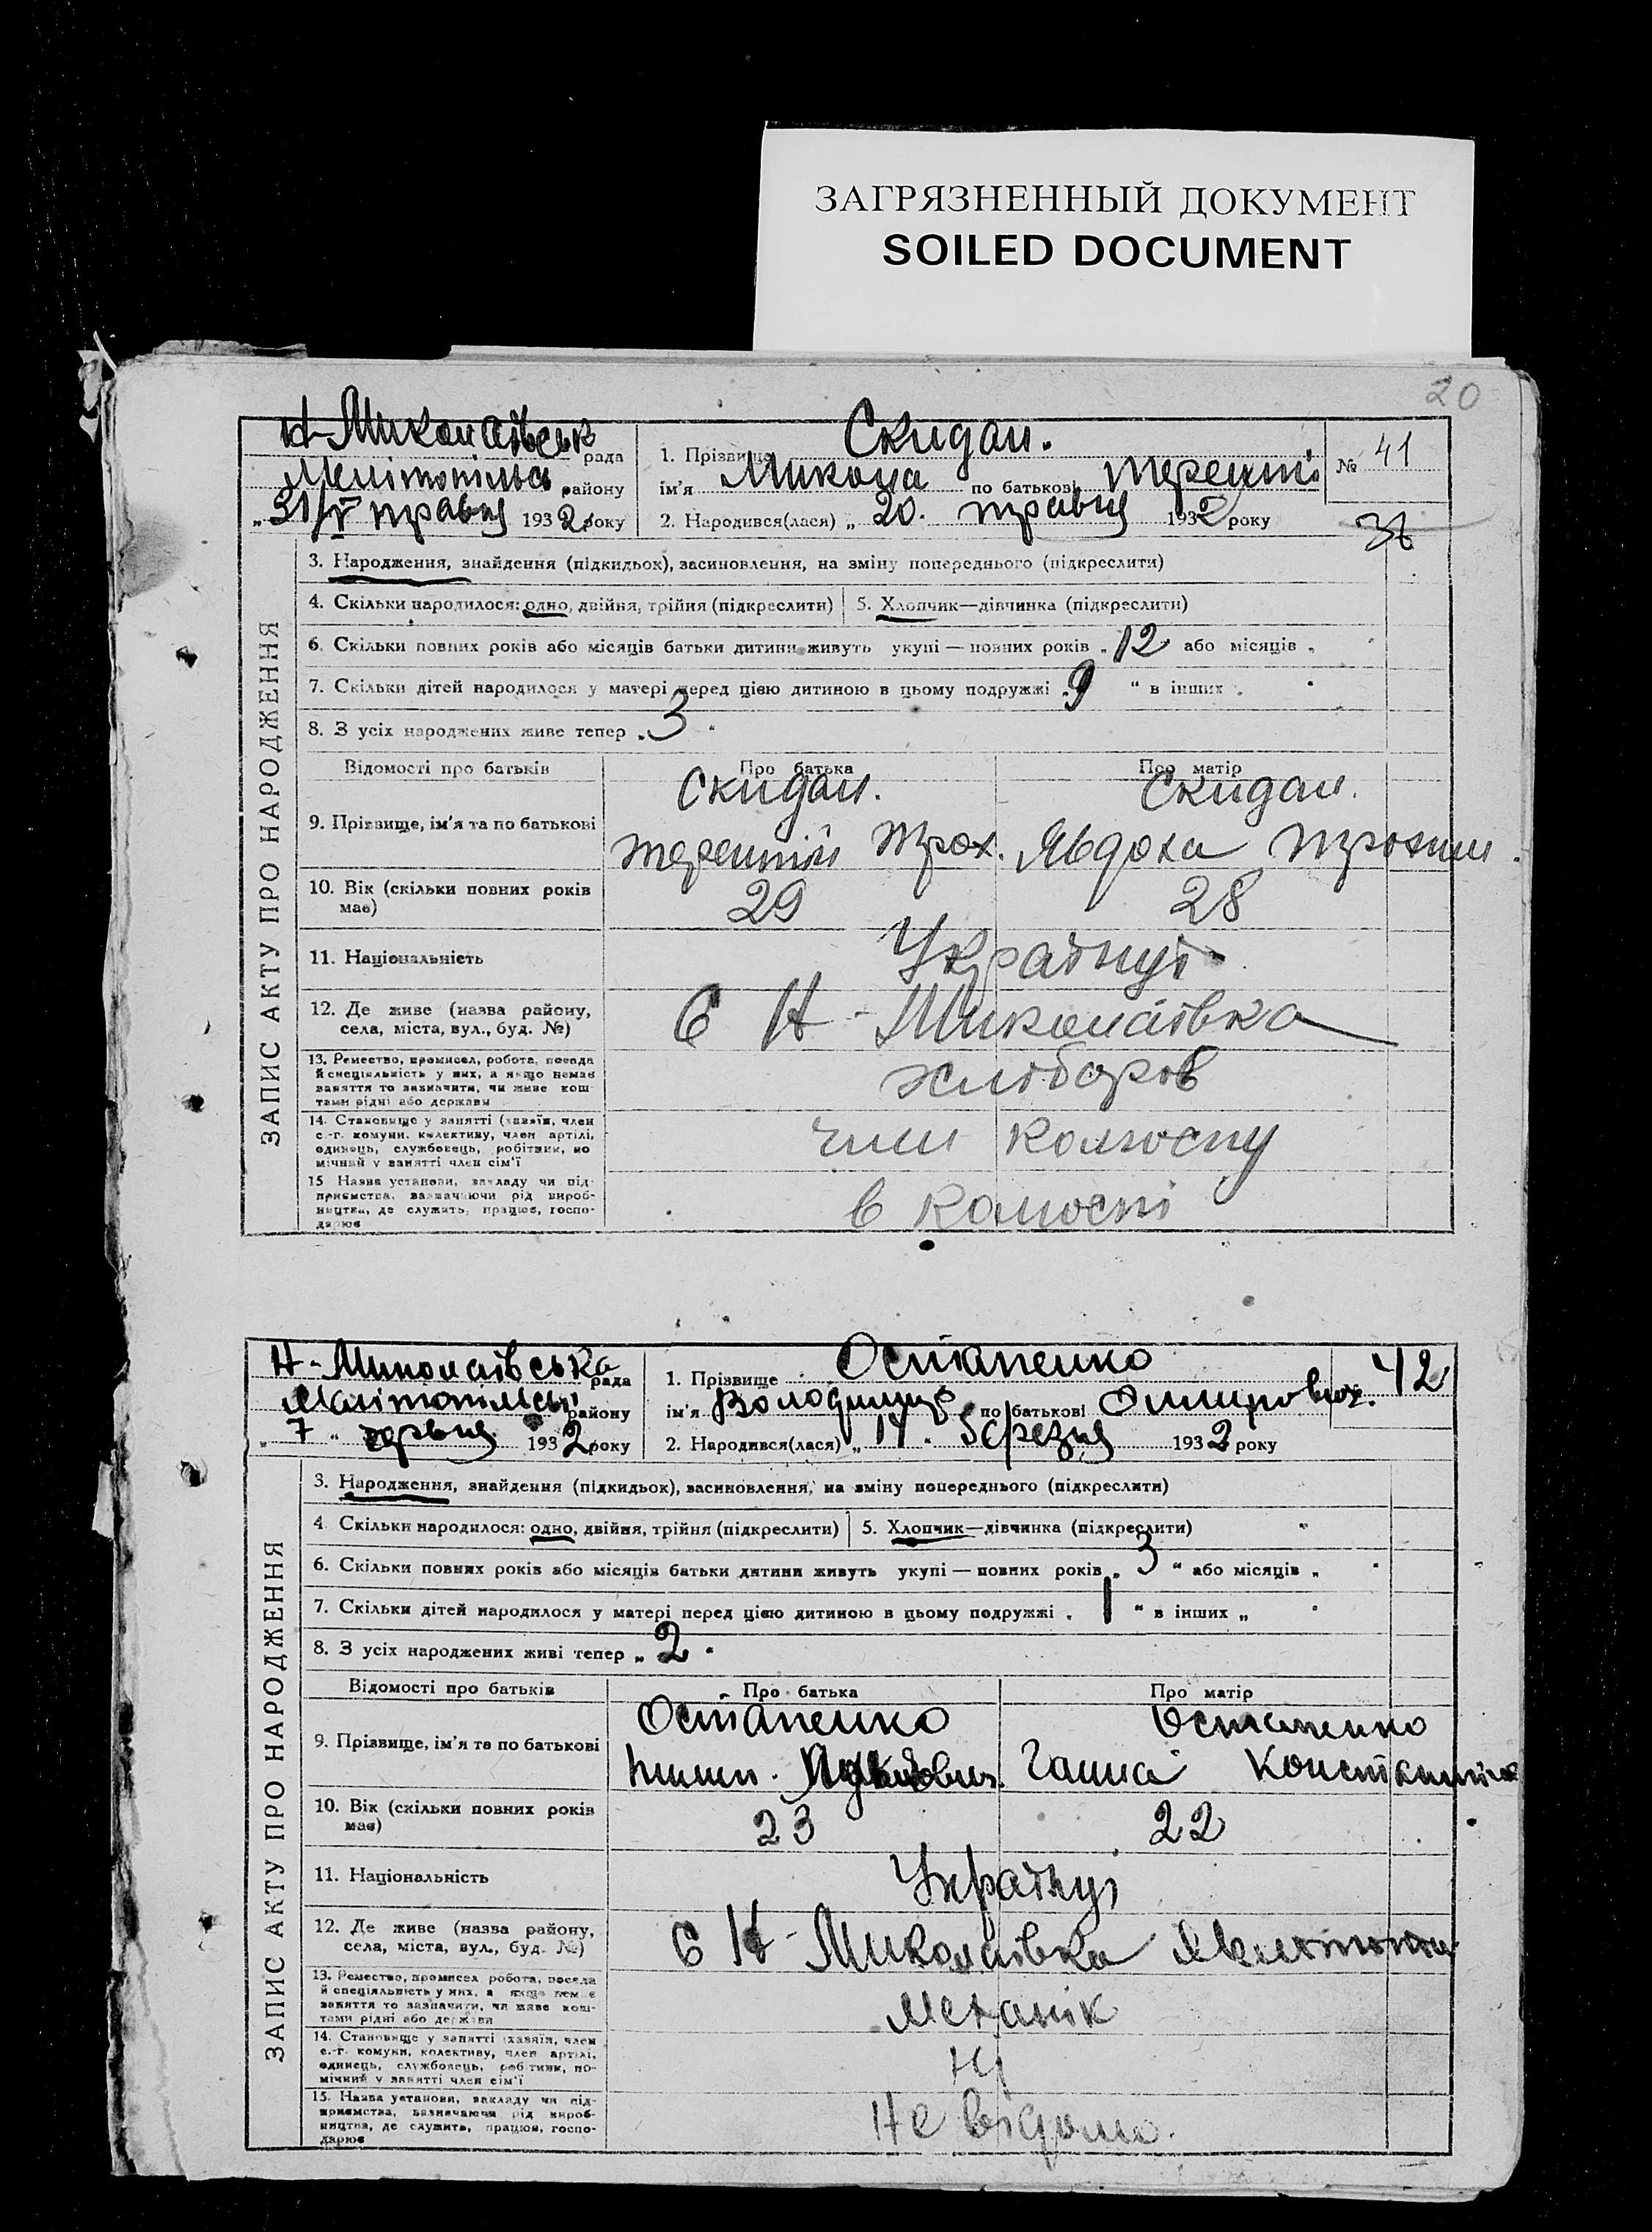 ЗАГРЯЗНЕННЫЙ ДОКУМЕНТ
SOILED DOCUMENT
20
Н-Миколаївськ рада
Мелітопільсь району
„31/V травня 1932 року
1. Прізвище Скидан.
ім'я Микола по батькові Терентій
2. Народився(лася) „20. травня 1932 року
№ 41
ЗАПИС АКТУ ПРО НАРОДЖЕННЯ
3. Народження, знайдення (підкидьок), засиновлення, на зміну попереднього (підкреслити)
4. Скільки народилося: одно, двійня, трійня (підкреслити) 5. Хлопчик—дівчинка (підкреслити)
6. Скільки повних років або місяців батьки дитини живуть укупі — повних років „12 або місяців „
7. Скільки дітей народилося у матері перед цією дитиною в цьому подружжі „9 “ в інших „
8. З усіх народжених живе тепер „3
Відомості про батьків Про батька Про матір
9. Прізвище, ім'я та по батькові
Скидан. Скидан.
Терентій Трох. Явдоха
10. Вік (скільки повних років має) 29 28
11. Національність Українці
12. Де живе (назва району, села, міста, вул., буд. №) С Н-Миколаївка
13. Ремество, промисел, робота, посада
й спеціяльність у них, а якщо немає
заняття то зазначити, чи живе кош-
тами рідні або держави
хлібороб
14. Становище у занятті (хазяїн, член
с.-г. комуни, колективу, член артілі,
одинець, службовець, робітник, по
мічний у занятті член сім'ї
член колгоспу
15 Назва установи, закладу чи під-
приємства, зазначаючи рід вироб-
ництва, де служить, працює, госпо-
дарює
в колгоспі
Н-Миколаївська рада
Мелітопільсь району
„7“ червня 1932 року
1. Прізвище Остапенко
ім'я Володимир по батькові
2. Народився(лася) „ 14. березня 1932 року
42
ЗАПИС АКТУ ПРО НАРОДЖЕННЯ
3. Народження, знайдення (підкидьок), засиновлення, на зміну попереднього (підкреслити)
4. Скільки народилося: одно, двійня, трійня (підкреслити) 5. Хлопчик—дівчинка (підкреслити)
6. Скільки повних років або місяців батьки дитини живуть укупі — повних років „3“ або місяців „
7. Скільки дітей народилося у матері перед цією дитиною в цьому подружжі „1“ в інших „
8. З усіх народжених живі тепер „2
Відомості про батьків Про батька Про матір
9. Прізвище, ім'я та по батькові
Остапенко Остапенко
Ганна
10. Вік (скільки повних років має) 23 22
11. Національність Українці
12. Де живе (назва району, села, міста, вул., буд. №) С Н-Миколаївка
13. Ремество, промисел робота, посада
й спеціяльність у них, а якщо немає
заняття то зазначити, чи живе кош-
тами рідні або держави
Механік
14. Становище у занятті (хазяїн, член
с.-г. комуни, колективу, член артілі,
одинець, службовець, робітник, по-
мічний у занятті член сім'ї
Ні
15. Назва установи, закладу чи під-
приємства, зазначаючи рід вироб-
ництва, де служить, працює, госпо-
дарює
Не відомо.